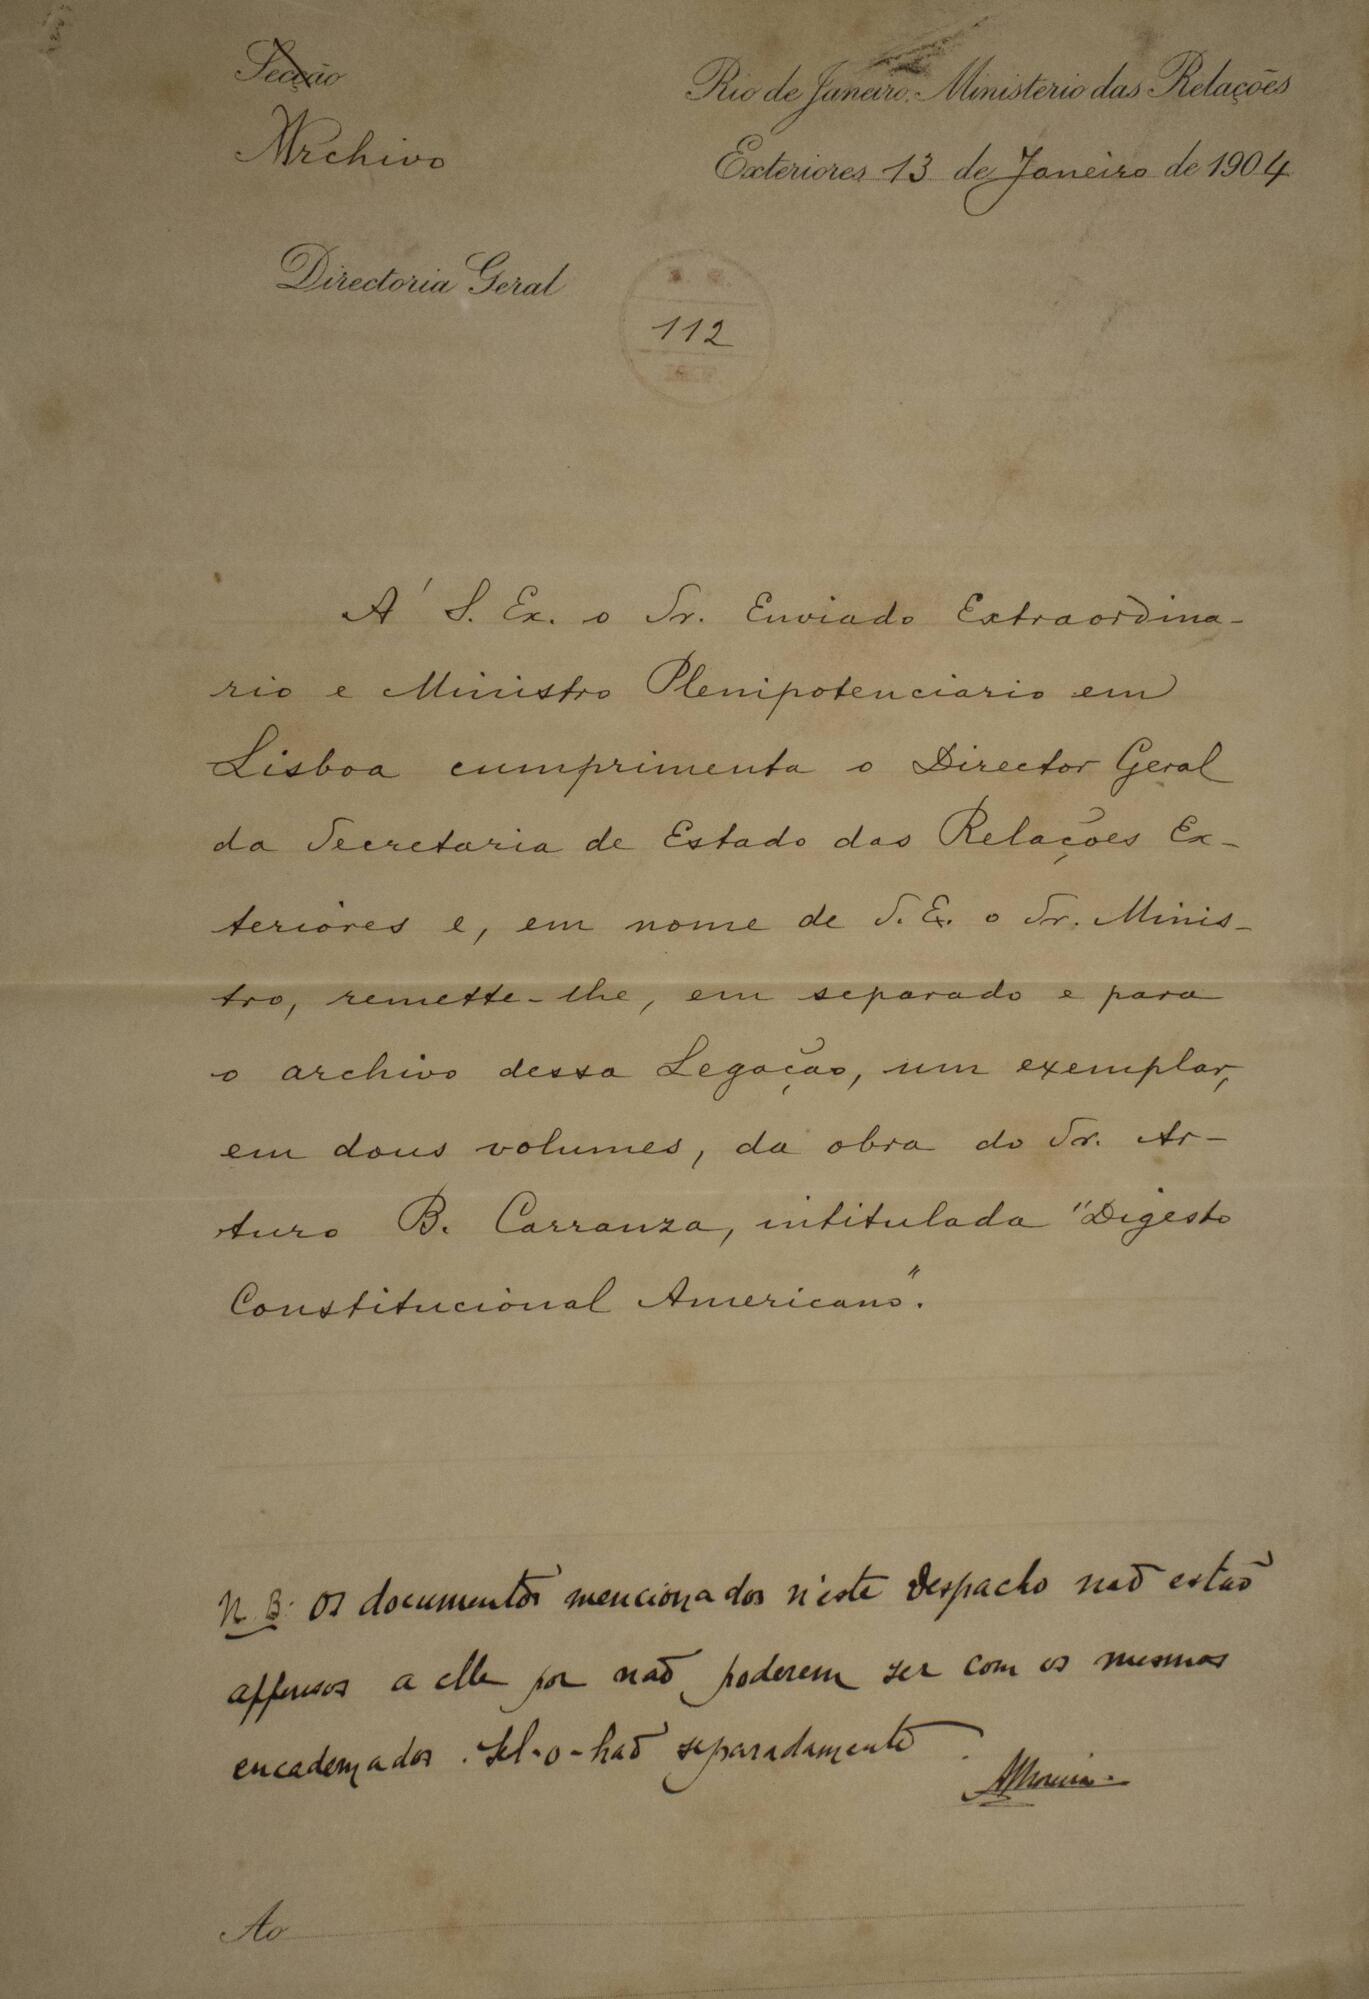 Secção
Archivo
Rio de Janeiro. Ministerio das Relações
Exteriores 13 de Janeiro de 1904
Directoria Geral
112
A' S. Ex. o Sr. Enviado Extraordina-
rio e Ministro Plenipotenciario em
Lisboa cumprimenta o Director Geral
da Secretaria de Estado das Relações Ex-
teriores e, em nome de S. E. o Sr. Minis-
tro, remette-lhe, em separado e para
o archivo dessa Legação, um exemplar,
em dous volumes, da obra do Sr. Ar-
turo B. Carranza, intitulada "Digesto
Constitucional Americano".
N. B. Os documentos mencionados n'este despacho não estão
appensos a elle por não poderem ser com os mesmos
encadernados. Sel-o-hão separadamente.
AMoreira.
Ao